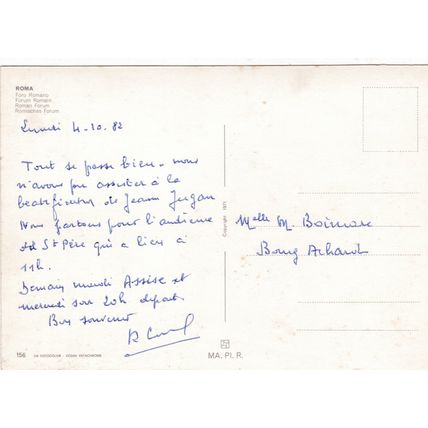 ROMA
Foro Romano
Forum Romain
Roman Forum
Römisches Forum
Lundi 4.10.82
Tout se passe bien - nous
n'avons pu assister à la
béatification de Jeanne Jugan
Nous partons pour l'audience
du St Père qui a lieu à
11h.
Demain mardi Assise et
mercredi soir 20h départ
Bon souvenir
Melle M. Boimare
Bourg Achard
Copyright 1971
156
MA. PI. R.